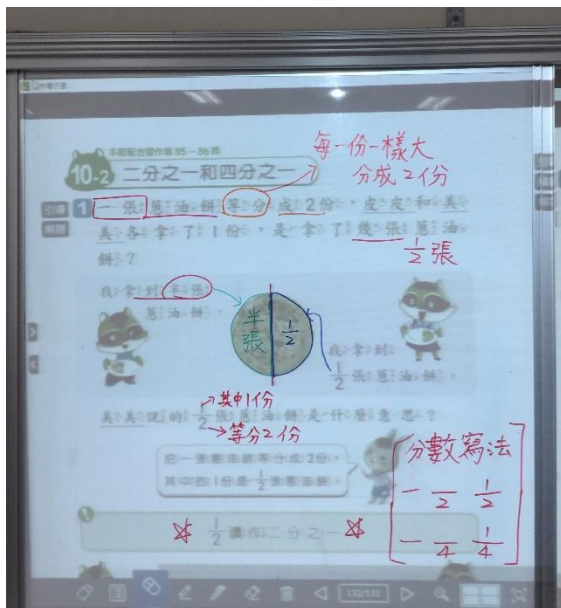 本節配合習作第85~86頁
10-2 二分之一和四分之一
每一份一樣大
分成2份
引導
1 一張蔥油餅等分成2份,皮皮和美
美各拿了1份,是拿了幾張蔥油
餅?
1/2張
我拿到半張
蔥油餅。
半張
1/2
我拿到
1/2張蔥油餅。
其中1份
美美說的1/2張蔥油餅是什麼意思?
等分2份
把一張蔥油餅等分成2份,
其中的1份是1/2張蔥油餅。
分數寫法
— —/2 1/2
— —/4 1/4
☆ 1/2讀作二分之一 ☆
132/133